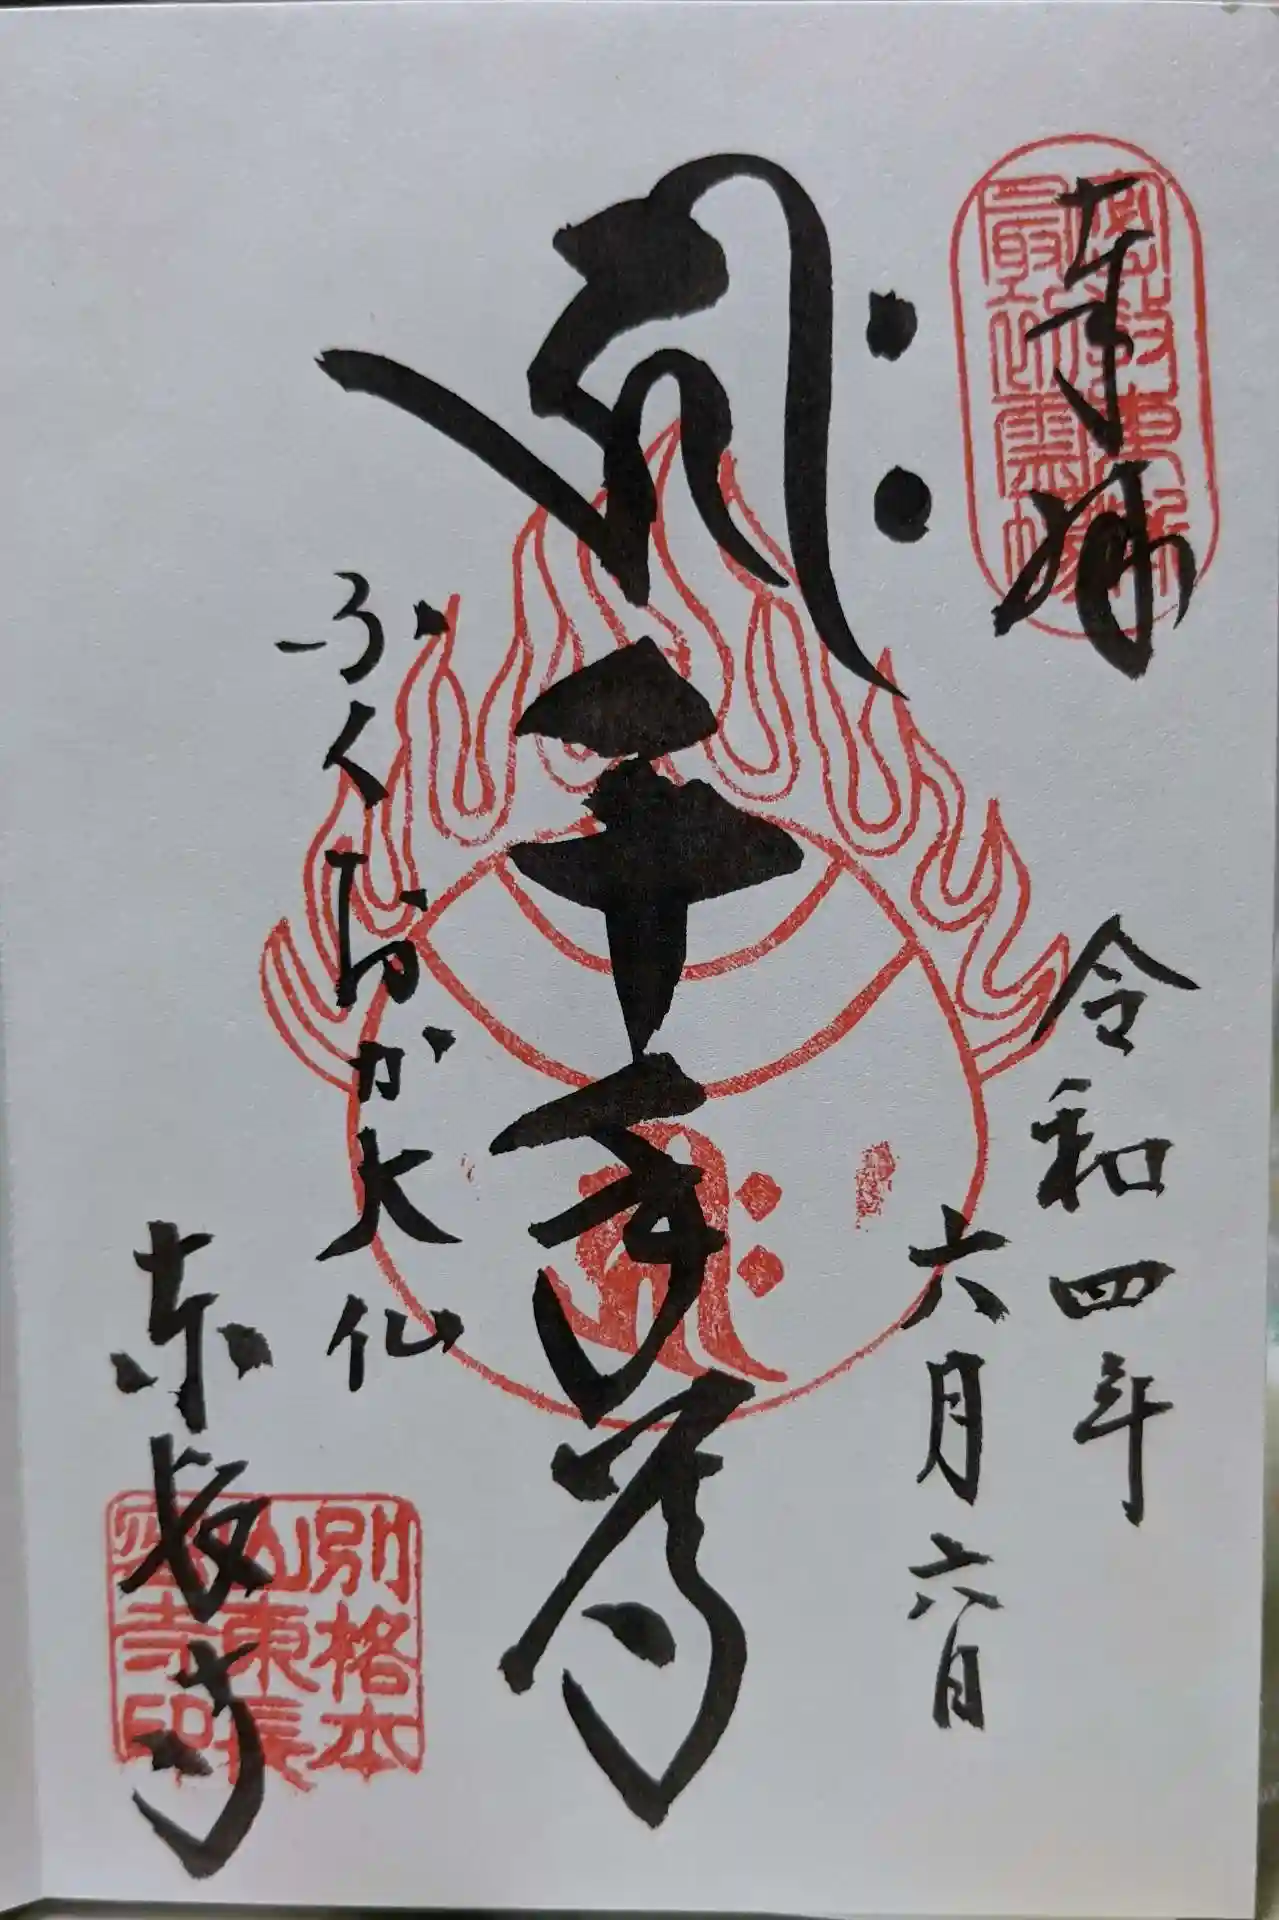 奉拝
令和四年
六月六日
千手尊
ふくおか大仏
東長寺
別格本
山東長
密寺印